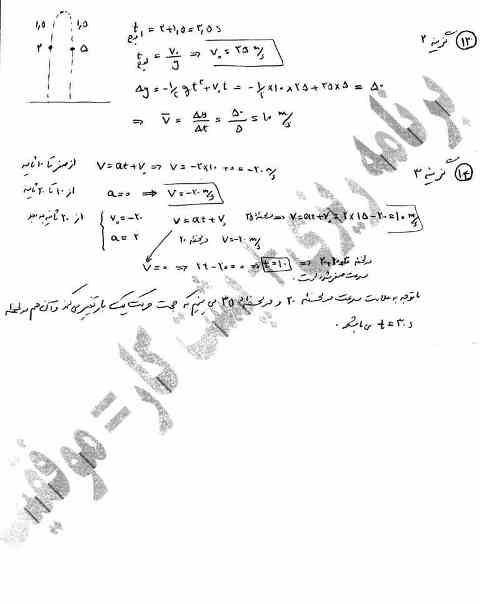 ۱۳ گزینه ۲
۱٫۵ ۱٫۵
۲ ۵
t اوج = ۲+۱٫۵ = ۳٫۵ s
t اوج = v₀/g ⇒ v₀ = ۳۵ m/s
Δy = -½ g t² + v₀t = -½ × ۱۰ × ۲۵ + ۳۵ × ۵ = ۵۰
⇒ V̄ = Δy/Δt = ۵۰/۵ = ۱۰ m/s
۱۴ گزینه ۳
از صفر تا ۱۰ ثانیه V = at + V₀ ⇒ V = -۲×۱۰ + ۰ = -۲۰ m/s
از ۱۰ تا ۲۰ ثانیه a = ۰ ⇒ V = -۲۰ m/s
از ۲۰ ثانیه به بعد V₀ = -۲۰ V = at + V₀ در لحظه ۳۵ ⇒ V = at + V₀ = ۲×۱۵ - ۲۰ = ۱۰ m/s
a = ۲ در لحظه ۲۰ V = -۲۰ m/s
V = ۰ ⇒ ۲t - ۲۰ = ۰ ⇒ t = ۱۰ ⇒ در لحظه
سرعت صفر شده است.
با توجه به علامت سرعت در لحظه ۲۰ و در لحظه ۳۵ می بینیم که جهت حرکت یک بار تغییر می کند و آن هم در لحظه
t = ۳۰ s می باشد.
برنامه ریزی + پشت کار = موفقیت